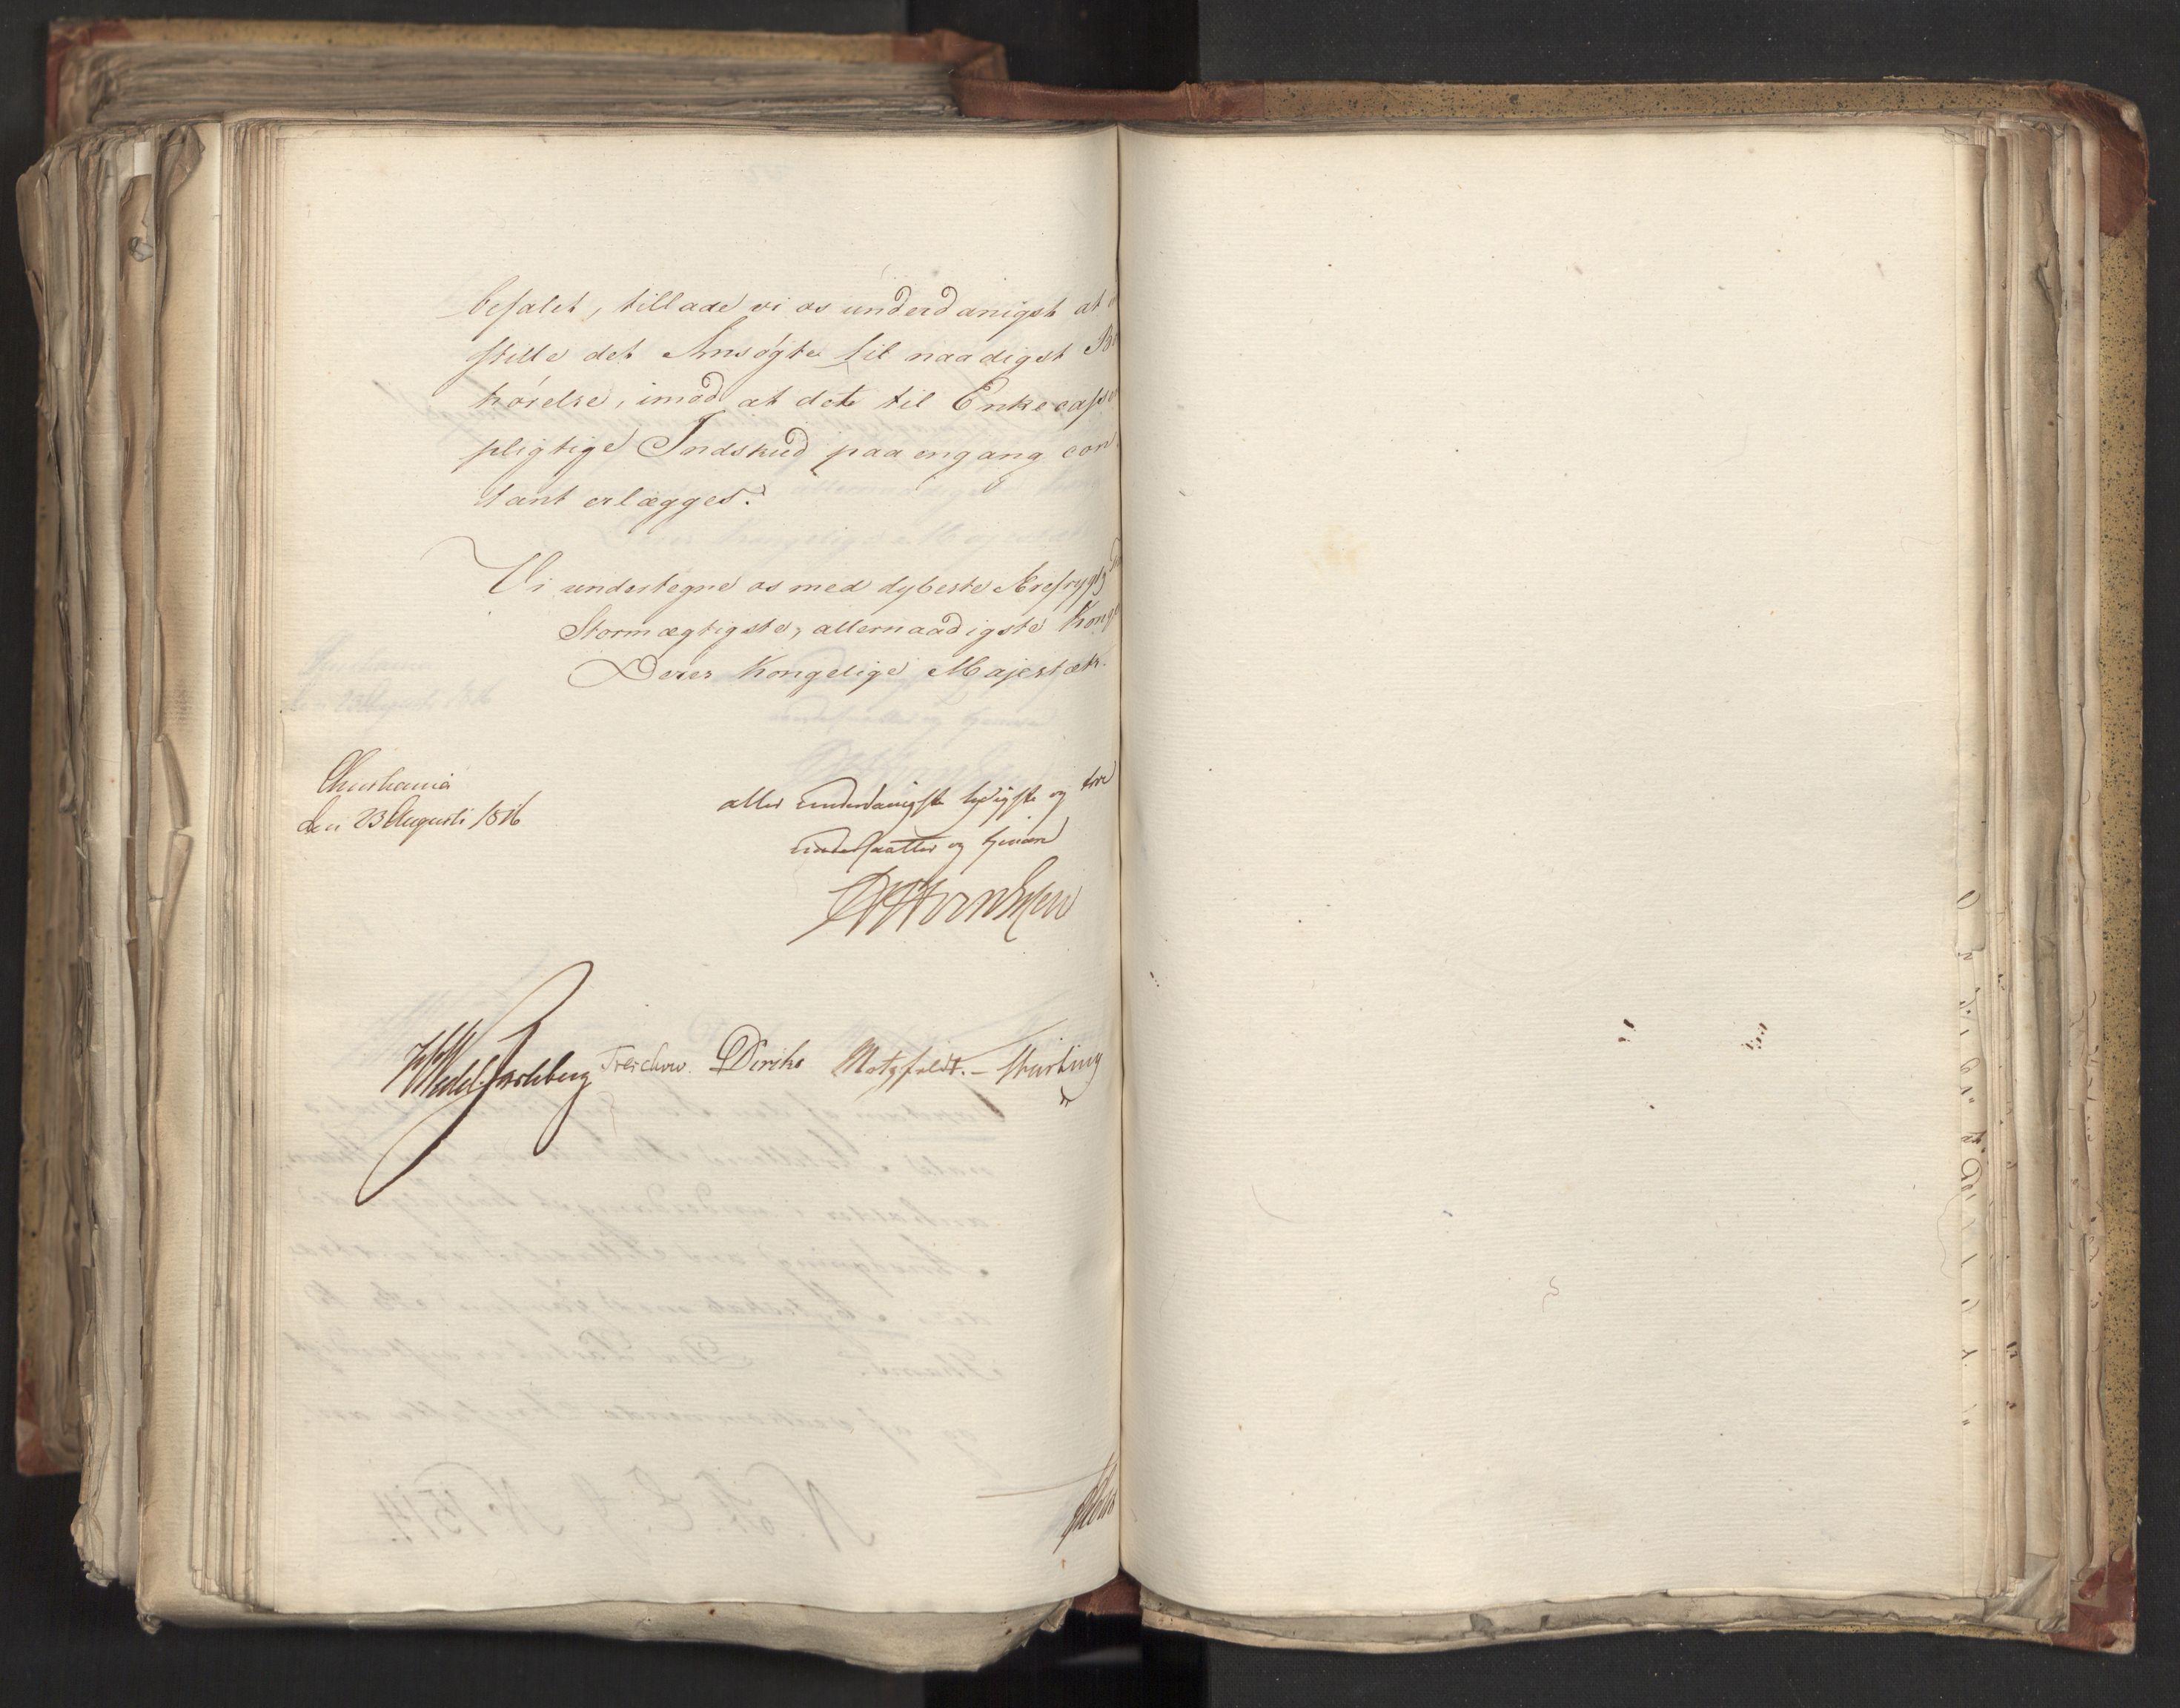 befalet, tillade vi os underdanigst at
stille det Ansøgte til naadigst Bø
hørelse, imod at dette til Enkecasse
pligtige Indskud paa engang con
tant erlægges.
Vi undertegne os med dybeste Ærefrygt
Stormægtigste, allernaadigste Konge
Deres Kongelige Majestæts
Christiania
den 23 Augusti 1816
aller underdanigste lydigste og troe
undersaatter og tjenere
Wedel Jarlsberg Treschow. Diriks Motzfeldt. –